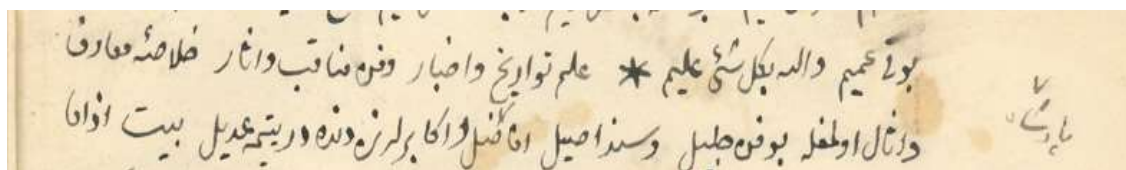 بونی عمیم والله بكل شئ علیم * علم تواریخ واخبار وفن مناقب واثار خلاصهٔ معارف
وامثال اولمغله بو فن جلیل وسند اصیل اماثل واکابرلرنده درّ یتیمه عدیل بیت اذا ما